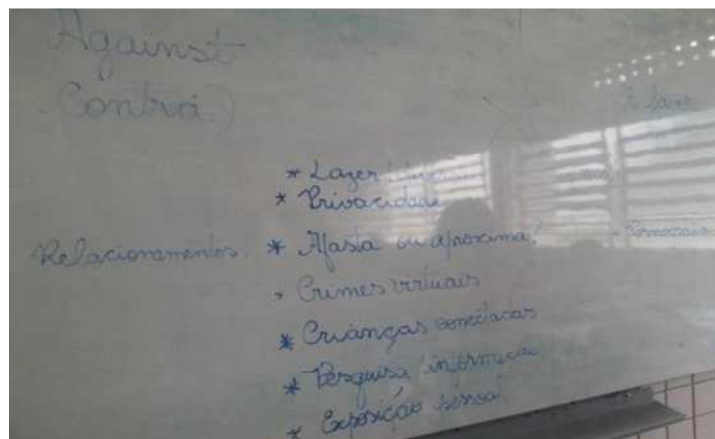 Against
Contra)
* Lazer
* Privacidade
Relacionamentos. * Afasta ou aproxima?
* Crimes virtuais
* Crianças conectadas
* Pesquisa informação
* Exposição pessoal